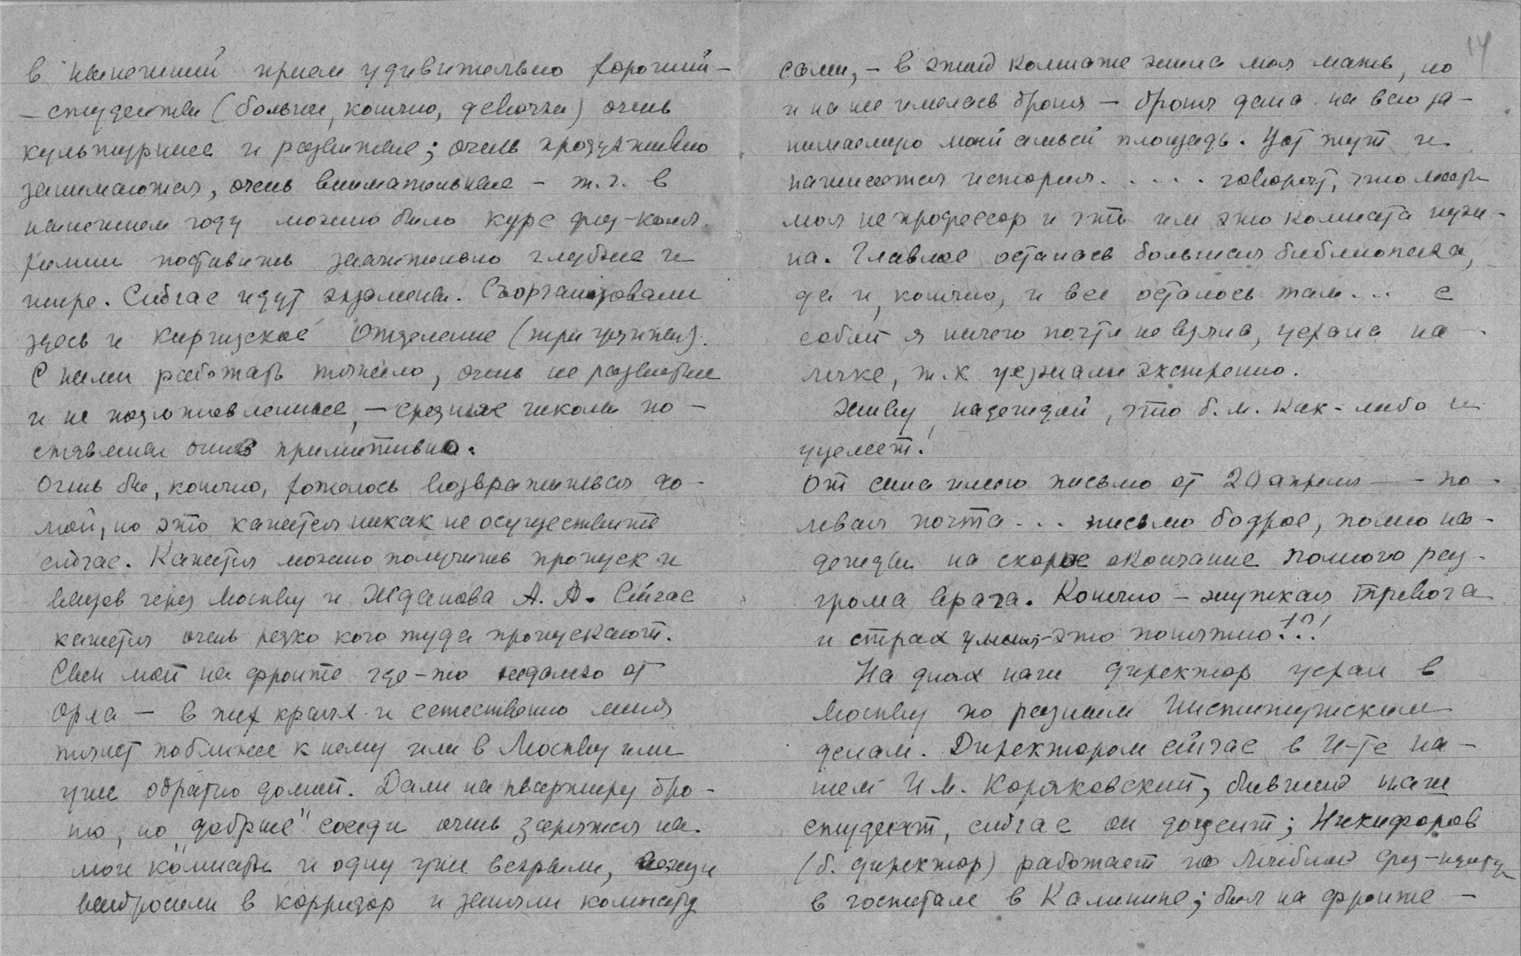 в нынешний прием удивительно хороший –
– студенты (больше, конечно, девочки) очень
культурные и развитые; очень продуктивно
занимаются, очень внимательные – т.ч. в
нынешнем году можно было курс физ-кол.
химии поставить значительно глубже и
шире. Сейчас идут экзамены. Сорганизовали
здесь и Киргизское Отделение (три группы).
С ними работать тяжело, очень не развитые
и не подготовленные, – средние школы по-
ставлены очень примитивно.
Очень бы, конечно, хотелось возвратиться до-
мой, но это кажется никак не осуществить
сейчас. Кажется можно получить пропуск и
вызов через Москву и Жданова А. А. Сейчас
кажется очень редко кого туда пропускают.
Сын мой на фронте где-то недалеко от
Орла – в тех краях и естественно меня
тянет поближе к нему или в Москву или
уже обратно домой. Дали на квартиру бро-
ню, но "добрые" соседи очень зарятся на
мои комнаты и одну уже вскрыли, вещи
выбросили в корридор и заняли комнату
14
сами, – в этой комнате жила моя мать, но
и на нее имелась броня – броня дана на всю за-
нимаемую моей семьей площадь. Вот тут и
начинается история..... говорят, что мать
моя не профессор и что им эта комната нуж-
на. Главное осталась большая библиотека,
да и, конечно, и все осталось там... с
собой я ничего почти не взяла, уехала на-
легке, т.к уезжали экстренно.
Живу надеждой, что б.м. как-либо и
уцелеет!
От сына имею письмо от 20 апреля – по-
левая почта... письмо бодрое, полно на-
дежды на скорое окончание полного раз-
грома врага. Конечно – жуткая тревога
и страх у меня – это понятно!?!
На днях наш директор уехал в
Москву по разным Институтским
делам. Директором сейчас в И-те на-
шем И. М. Коряковский, бывший наш
студент, сейчас он доцент; Никифоров
(б. директор) работает по лечебной физ-культуре
в госпитале в Калинине; был на фронте –